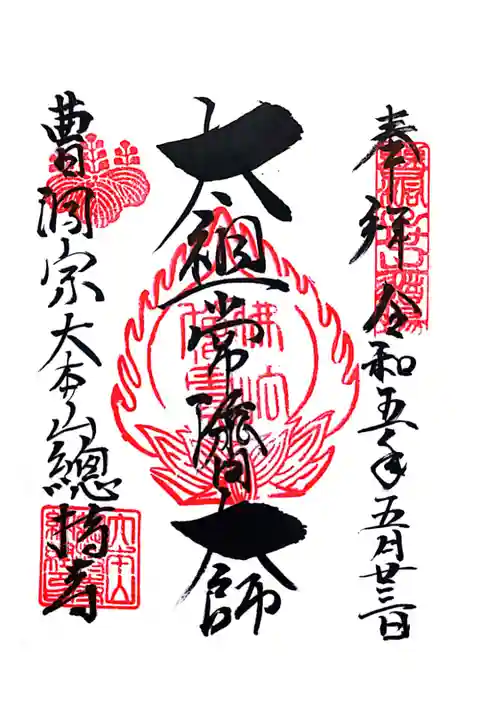 奉拜 令和五年五月廿三日
太祖常濟大師
曹洞宗大本山總持寺
大本山